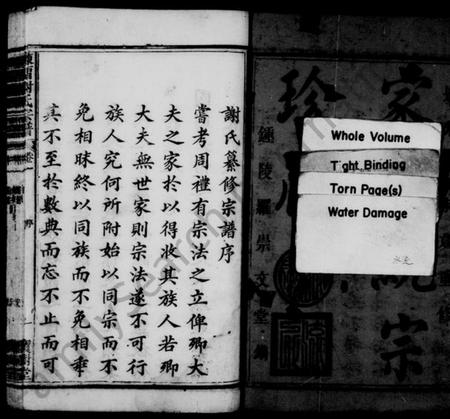 謝氏纂修宗譜序
嘗考周禮有宗法之立俾卿大
夫之家於以得收其族人若卿
大夫無世家則宗法遂不可行
族人究何所附始以同宗而不
免相眛終以同族而不免相乖
其不至於數典而忘不止而可
家
宗
珍
鍾陵羅崇文堂
Whole Volume
Tight Binding
Torn Page(s)
Water Damage